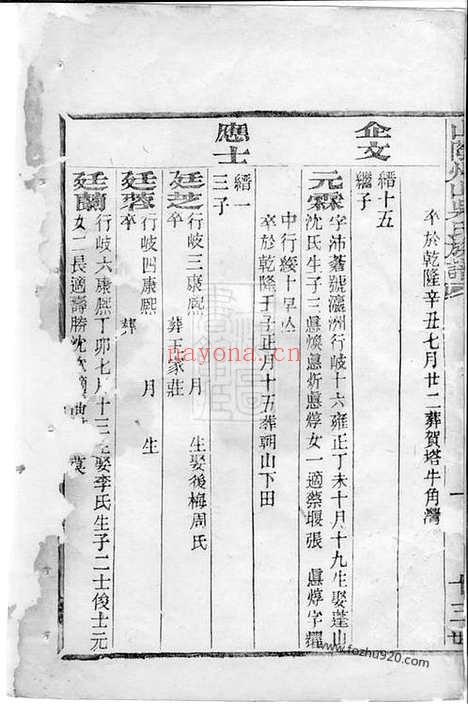 山陰州山吳氏族譜
十三世
卒於乾隆辛丑七月廿二葬賀塔牛角灣
企文
縉十五
繼子
元霖
字沛蒼號瀛洲行岐十六雍正丁未十月十九生娶蓬山
沈氏生子三 女一適蔡堰張
中行綏十早亾
卒於乾隆壬子正月十五葬朝山下田
應士
縉一
三子
廷芝
行岐三康熙 月 生娶後梅周氏
卒 葬王家莊
行岐四康熙 月 生
卒 葬
廷蘭
行岐六康熙丁卯七月十三生娶李氏生子二士俊士元
女二長適壽勝沈次適
nayona.cn
www.fozhu920.com